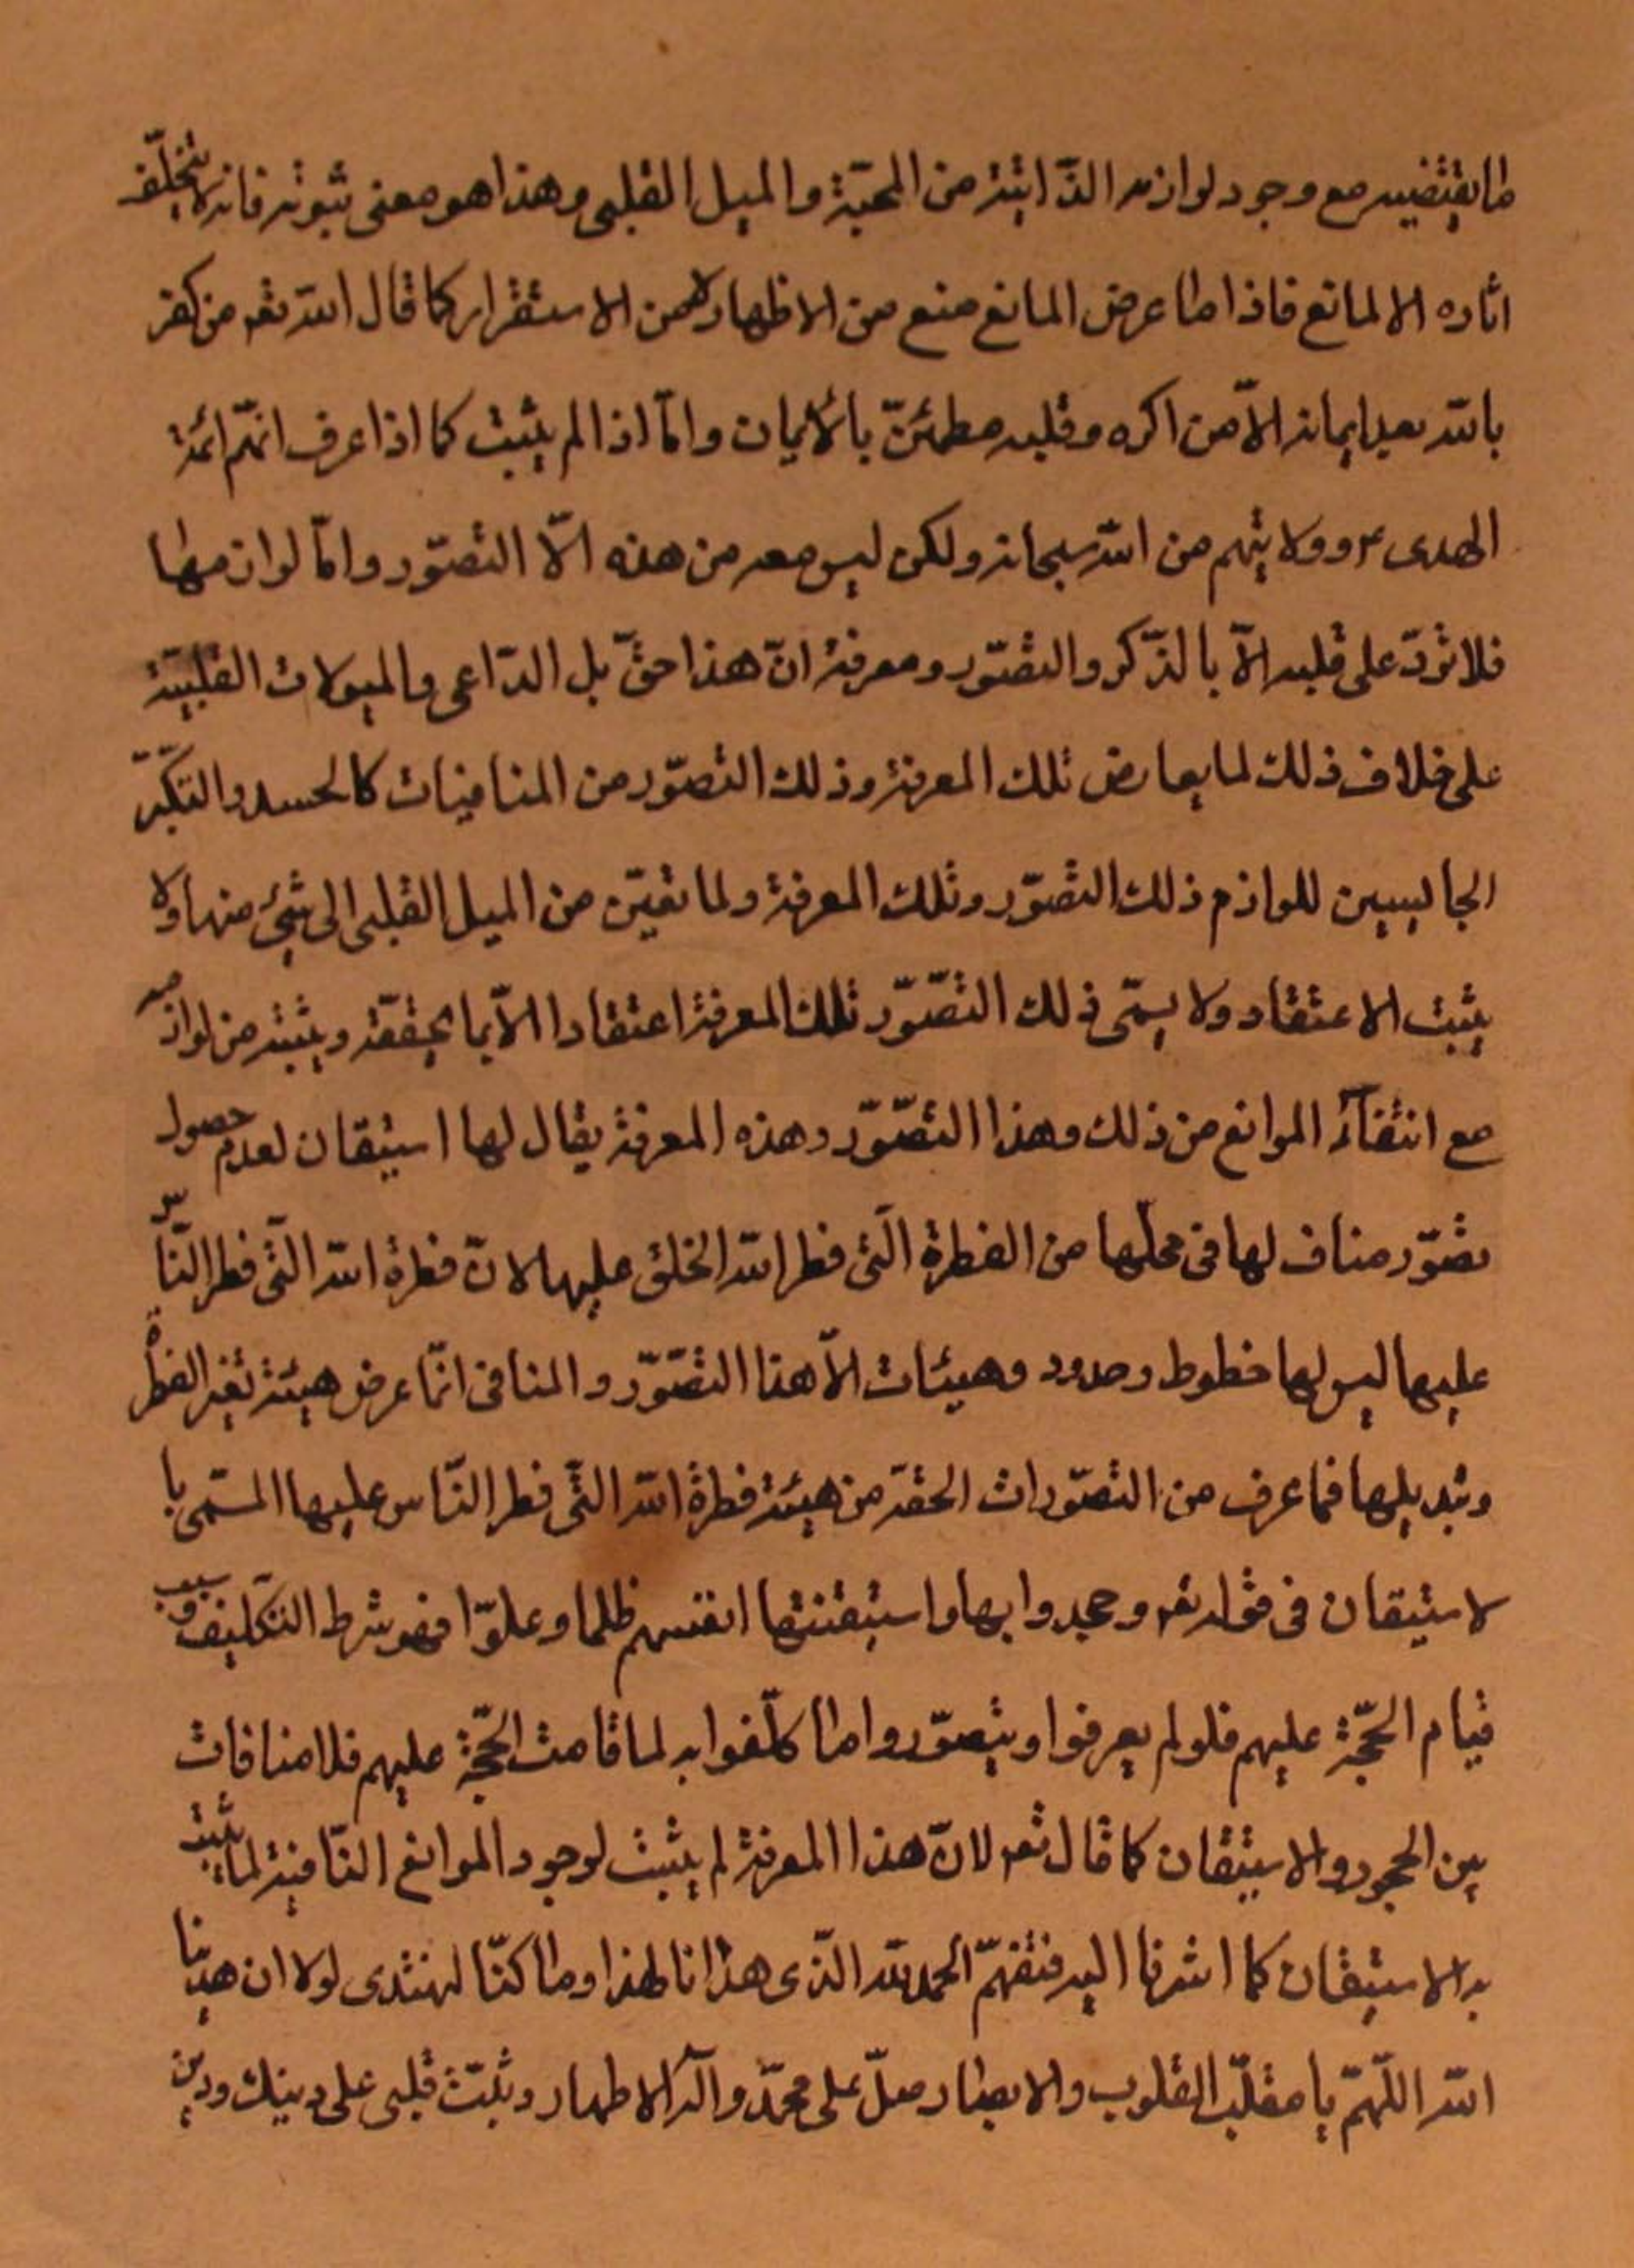 ما يقتضيه مع وجود لوازمه الذّاتيّة من المحبّة والميل القلبى وهذا هو معنى ثبوته فانه لا يتخلّف
اثاره الا لمانع فاذا ما عرض المانع منع من الاظهار لا من الاستقرار كما قال الله تعـ من كفر
بالله بعد ايمانه الاّ من اكره وقلبه مطمئنّ بالايمان وامّا اذا لم يثبت كما اذا عرف انهّم ائمّة
الهدى ع وولايتهم من الله سبحانه ولكن ليس معه من هذه الاّ التصوّر وامّا لوازمها
فلا تردّ على قلبه الاّ بالذّكر والتصّور ومعرفة انّ هذا حقّ بل الدّاعى والميولات القلبيّة
على خلاف ذلك لما يعارض تلك المعرفة وذلك التصوّر من المنافيات كالحسد والتكبّر
الجالبين للوازم ذلك التصّور وتلك المعرفة ولما تعيّن من الميل القلبى الى شىء منها ولا
يثبت الاعتقاد ولا يسمّى ذلك التصّوّر تلك المعرفة اعتقادا الاّ بما يحققّه ويثبته من لوازمه
مع انتفاء الموانع من ذلك وهذا التصّوّر وهذه المعرفة يقال لها استيقان لعدم حصول
تصّور مناف لها فى محلّها من الفطرة الّتى فطر الله الخلق عليها لانّ فطرة الله الّتى فطر النّاس
عليها ليس لها خطوط وحدود وهيئات الاّ هذا التصّوّر والمنافى انّما عرض هيئة تغير الفطرة
وتبديلها فما عرف من التصوّرات الحقّه من هيئة فطرة الله الّتى فطر النّاس عليها المسمّى با
لاستيقان فى قوله تعـ وجحدوا بها واستيقنتها انفسهم ظلما وعلوّا فهو شرط التّكليف وسبب
قيام الحجّة عليهم فلو لم يعرفوا ويتصوّروا ما كلّفوا به لما قامت الحجّة عليهم فلا منافات
بين الجحود والاستيقان كما قال تعـ لانّ هذا المعرفة لم يثبت لوجود الموانع النّافية لما يثبت
به الاستيقان كما اشرنا اليه فتفهّم الحمد لله الّذى هذانا لهذا وما كنّا لنهتدى لولا ان هدينا
الله اللّهمّ يا مقلّب القلوب والابصار صلّ على محمّد وآله الاطهار وثبّت قلبى على دينك ودين